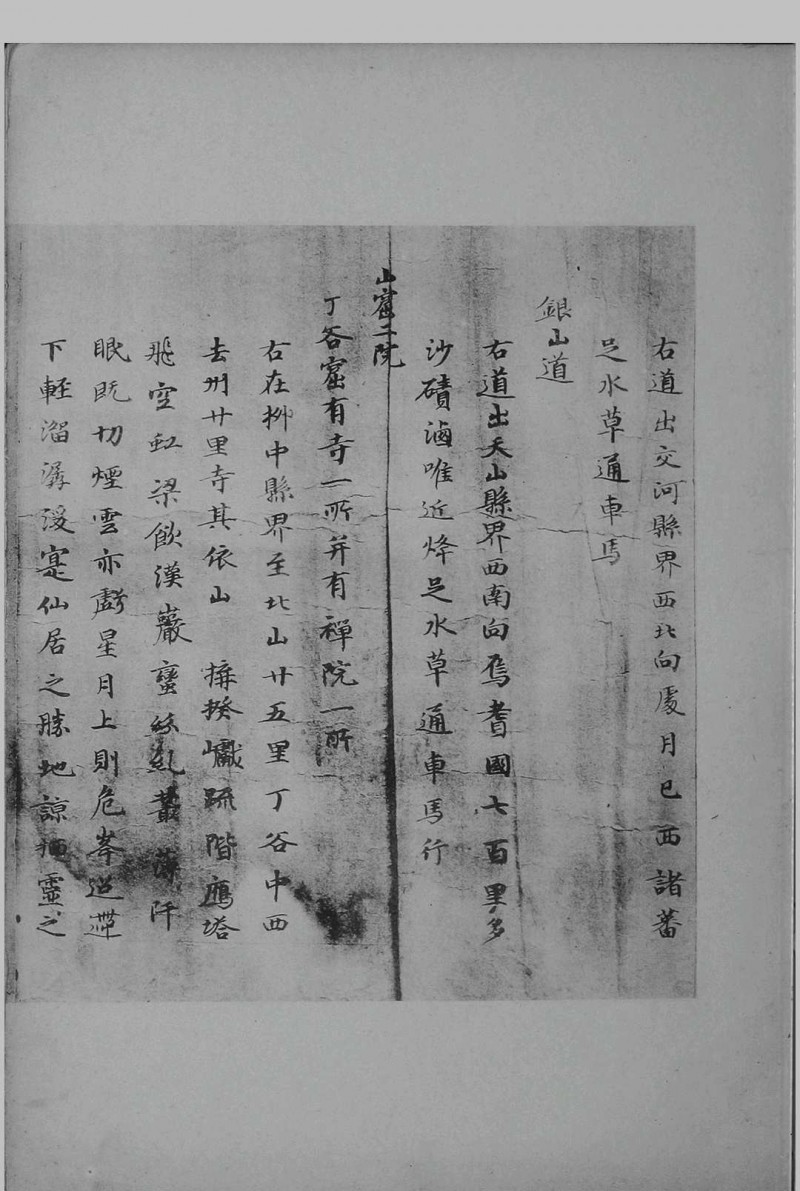 右道出交河縣界西北向處月已西諸蕃
足水草通車馬
銀山道
右道出天山縣界西南向焉耆國七百里多
沙磧滷唯近烽足水草通車馬行
山窟二院
丁谷窟有寺一所并有禪院一所
右在柳中縣界至北山廿五里丁谷中西
去州廿里寺其依山搆揆巘疏階鴈塔
飛空虹梁飲漢巖蠻紛糺叢薄阡
眠既切煙雲亦虧星月上則危峯迢遰
下輕溜潺湲寔仙居之勝地諒栖靈之